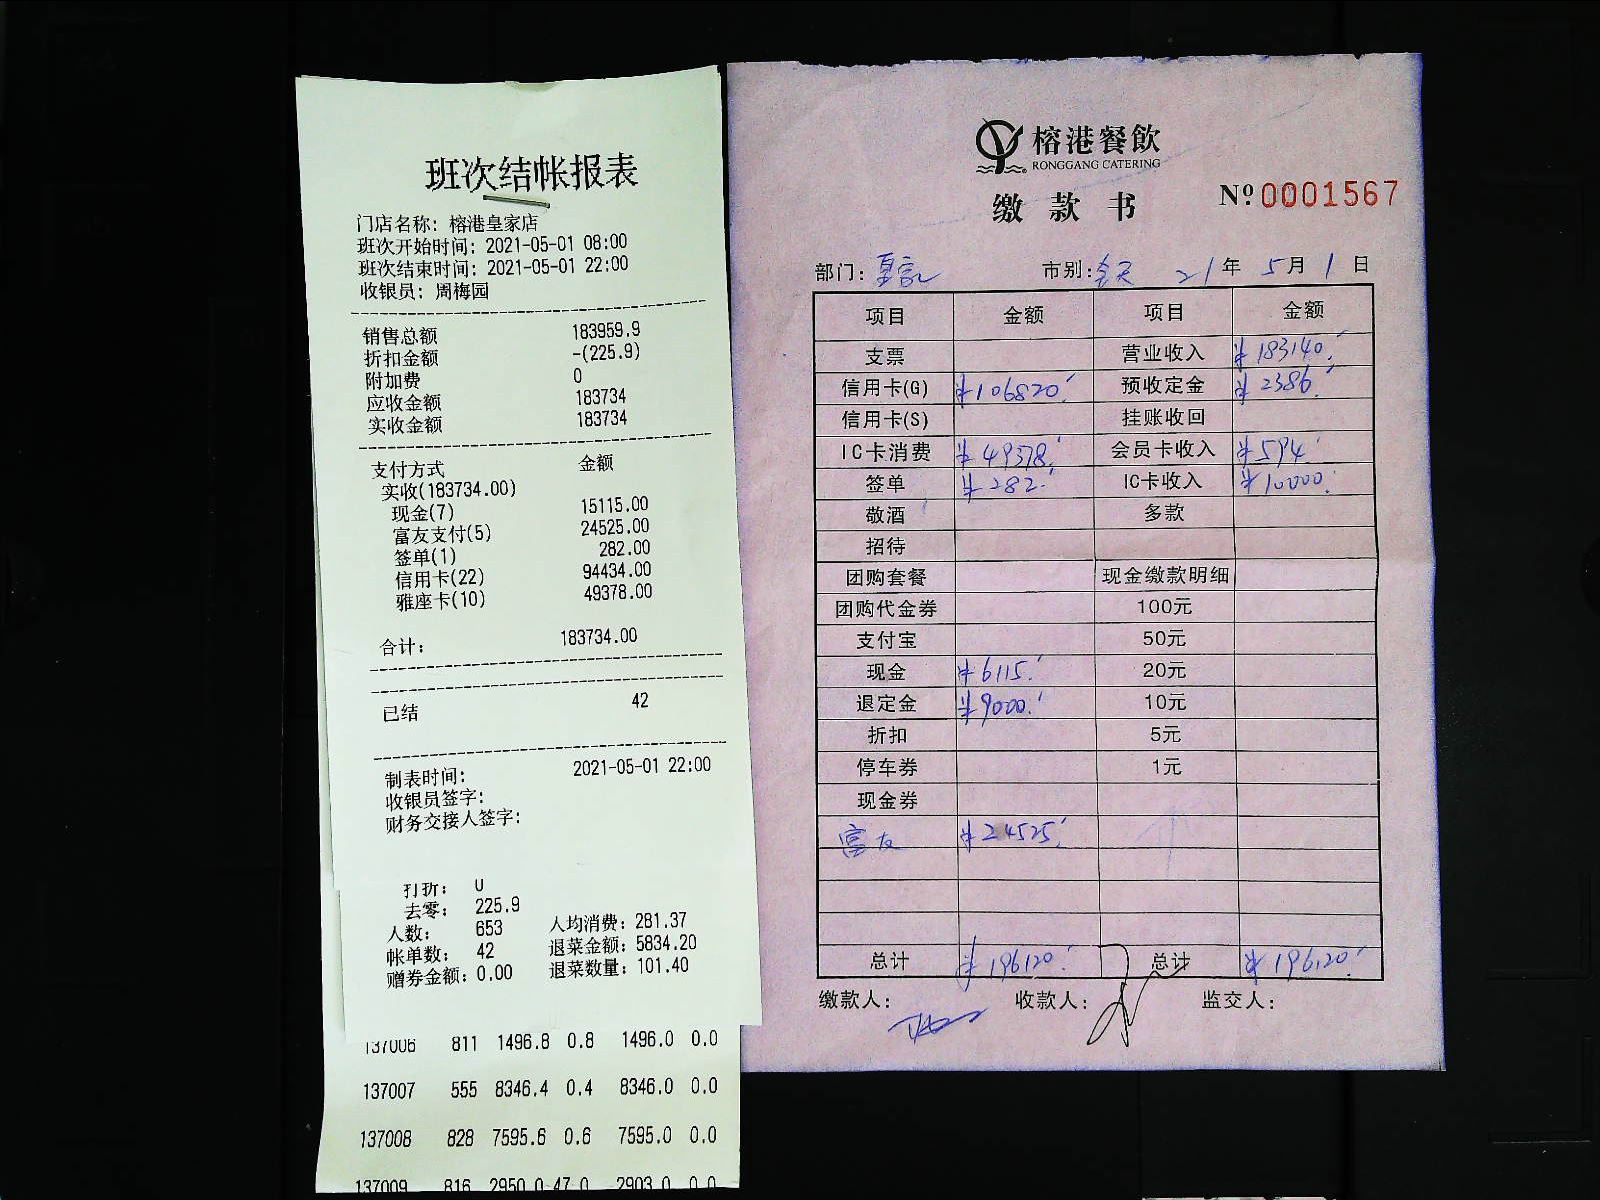 班次结帐报表
门店名称: 榕港皇家店
班次开始时间: 2021-05-01 08:00
班次结束时间: 2021-05-01 22:00
收银员: 周梅园
销售总额 183959.9
折扣金额 -(225.9)
附加费 0
应收金额 183734
实收金额 183734
支付方式 金额
实收(183734.00)
现金(7) 15115.00
富友支付(5) 24525.00
签单(1) 282.00
信用卡(22) 94434.00
雅座卡(10) 49378.00
合计: 183734.00
已结 42
制表时间: 2021-05-01 22:00
收银员签字:
财务交接人签字:
打折: 0
去零: 225.9
人数: 653 人均消费: 281.37
帐单数: 42 退菜金额: 5834.20
赠券金额: 0.00 退菜数量: 101.40
137006 811 1496.8 0.8 1496.0 0.0
137007 555 8346.4 0.4 8346.0 0.0
137008 828 7595.6 0.6 7595.0 0.0
137009 816 2950.0 47.0 2903.0 0.0
榕港餐飲
RONGGANG CATERING
缴款书 Nº 0001567
部门: 市别: 全天 21年 5月 1日
项目 金额 项目 金额
支票 营业收入 ¥183140.
信用卡(G) ¥106820. 预收定金 ¥2386.
信用卡(S) 挂账收回
IC卡消费 ¥49378. 会员卡收入 ¥594
签单 ¥282. IC卡收入 ¥10000.
敬酒 多款
招待
团购套餐 现金缴款明细
团购代金券 100元
支付宝 50元
现金 ¥6115. 20元
退定金 ¥9000. 10元
折扣 5元
停车券 1元
现金券
富友 ¥24525.
总计 ¥196120. 总计 ¥196120.
缴款人: 收款人: 监交人: